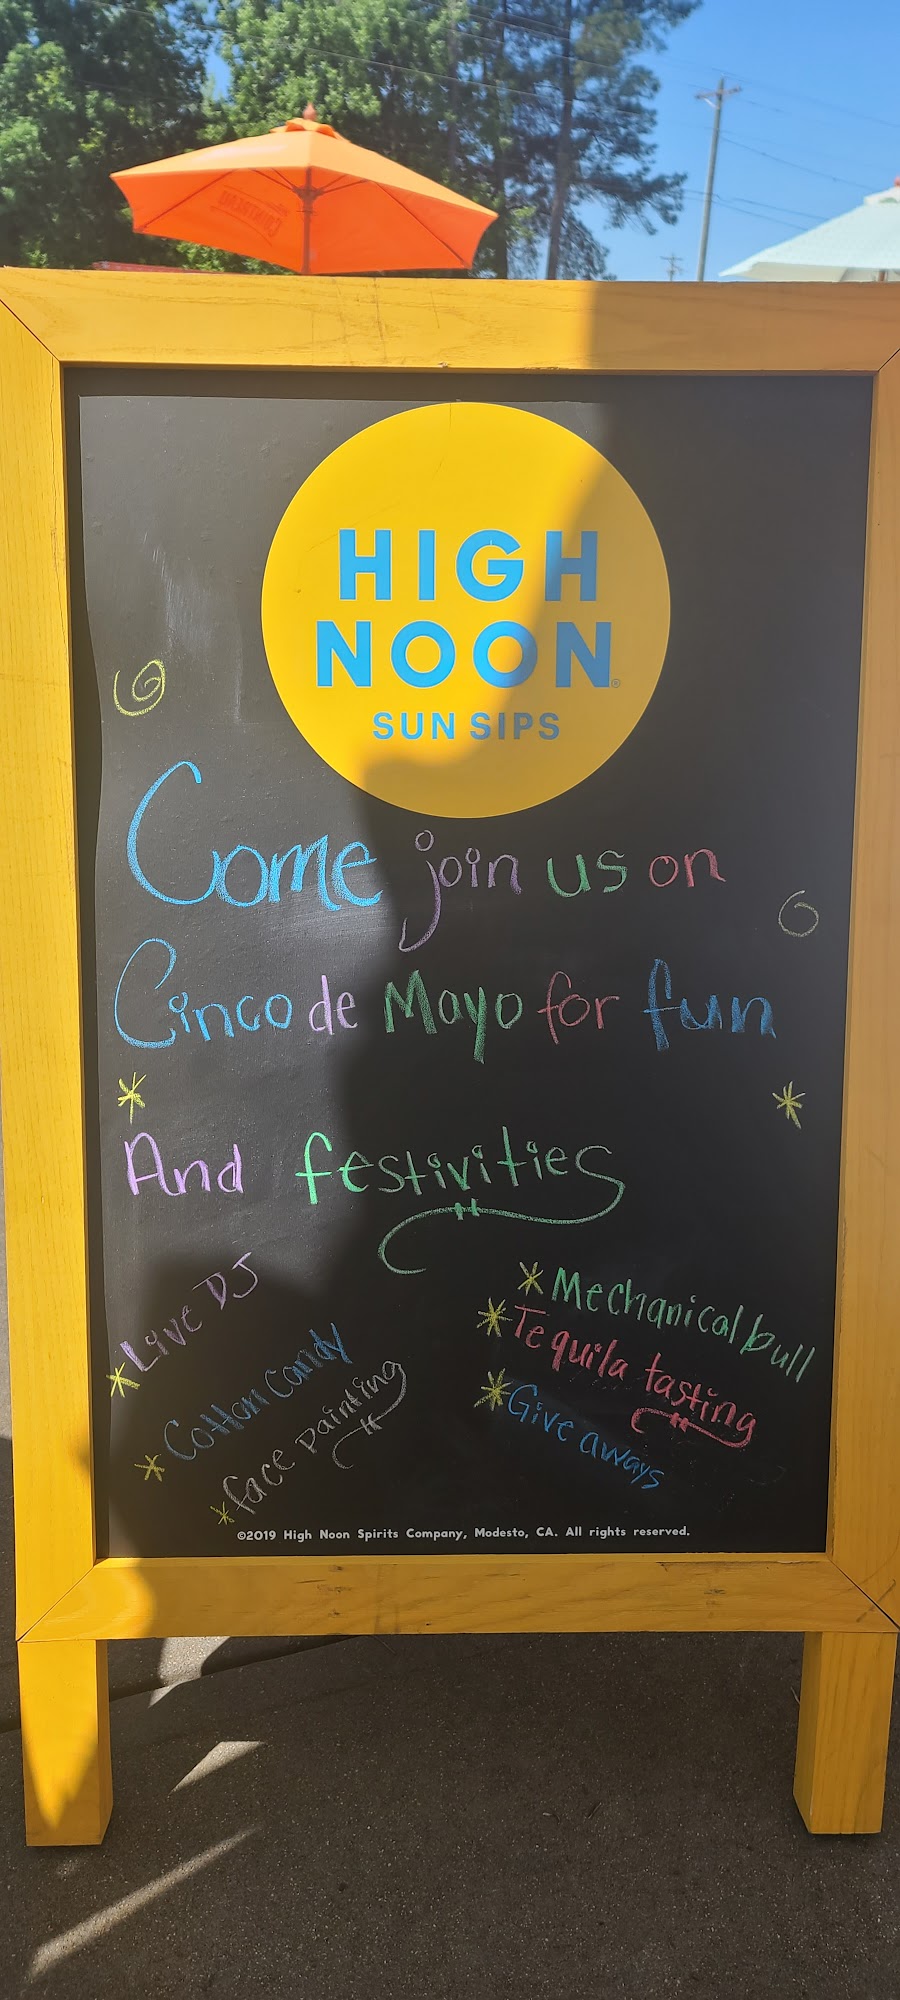 COINTREAU
HIGH
NOON®
SUN SIPS
Come join us on
Cinco de Mayo for fun
And festivities
*Live DJ
*Cotton Candy
*face painting
*Mechanical bull
*Tequila tasting
*Give aways
©2019 High Noon Spirits Company, Modesto, CA. All rights reserved.